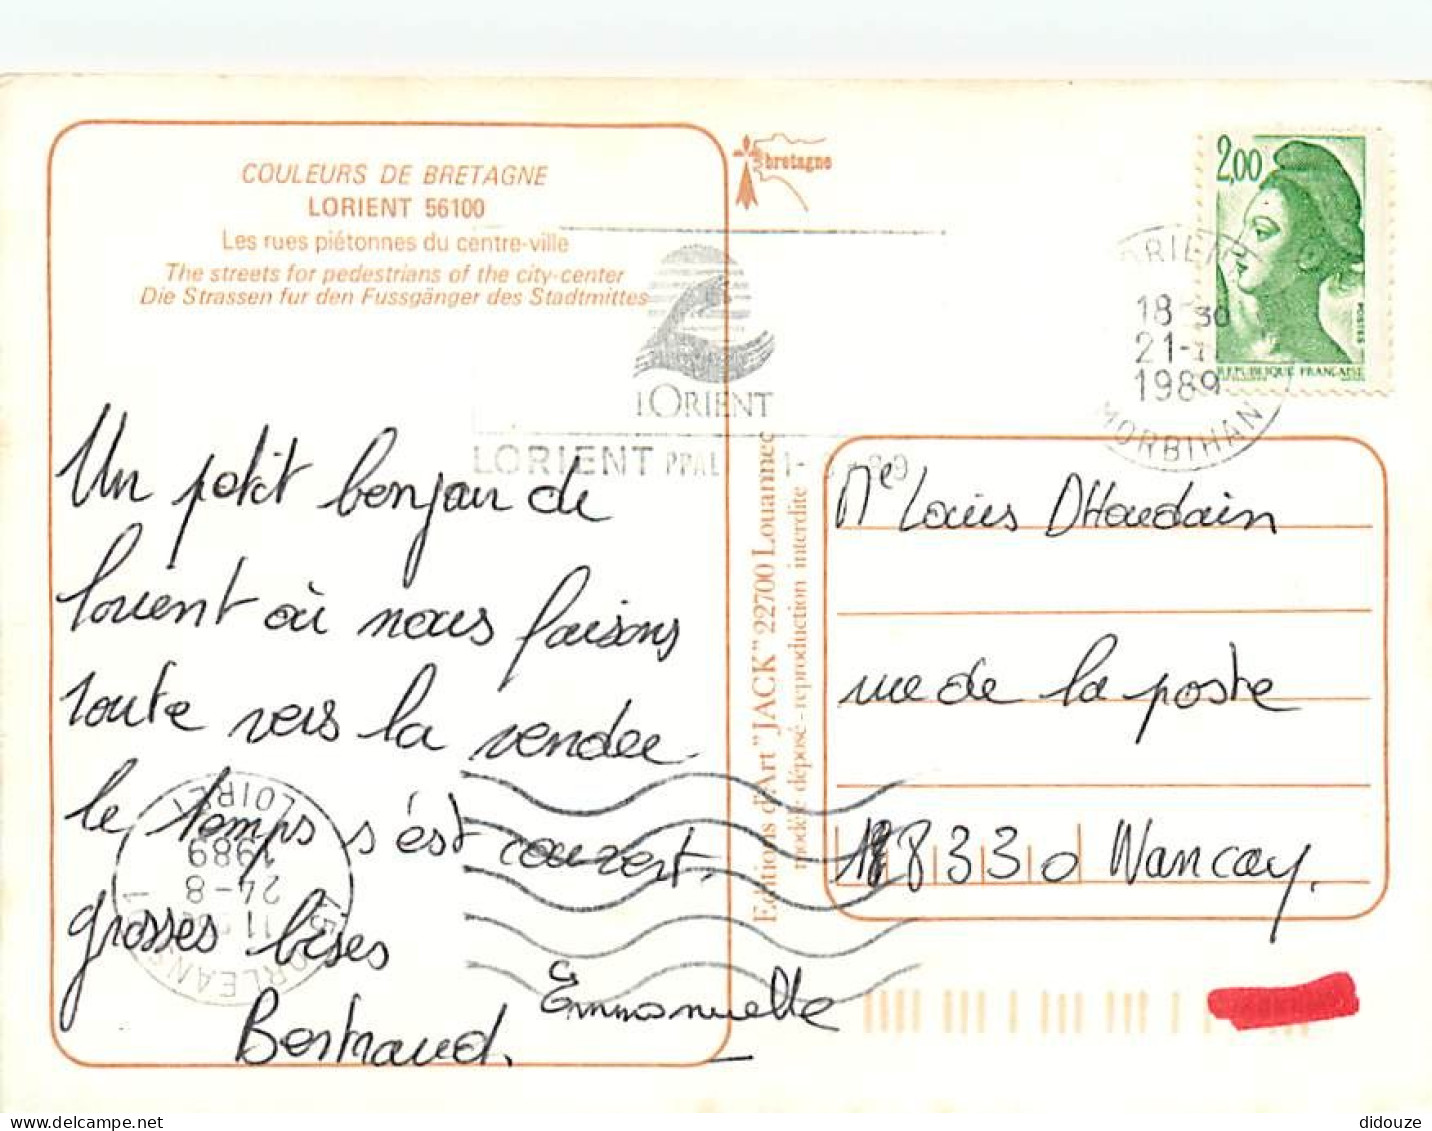 COULEURS DE BRETAGNE
LORIENT 56100
Les rues piétonnes du centre-ville
The streets for pedestrians of the city-center
Die Strassen fur den Fussgänger des Stadtmittes
bretagne
2,00
POSTES
REPUBLIQUE FRANÇAISE
18 30
21-
1989
MORBIHAN
LORIENT
LORIENT PPAL
Un petit bonjour de
lorient où nous faisons
route vers la vendee
le temps s'est couvert.
grosses bises
Bertrand.
Emmanuelle
Editions d'Art "JACK" 22700 Louannec
modèle déposé - reproduction interdite
Me Louis DHoudain
rue de la poste
18330 Nancay.
ORLEANS
11
24-8
1989
LOIRET
didouze